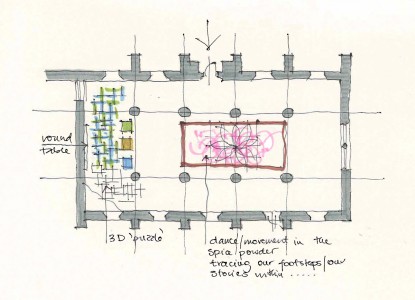 round
table
3D 'puzzle'
dance/movement in the
spice powder
tracing our footsteps/our
stories within .....